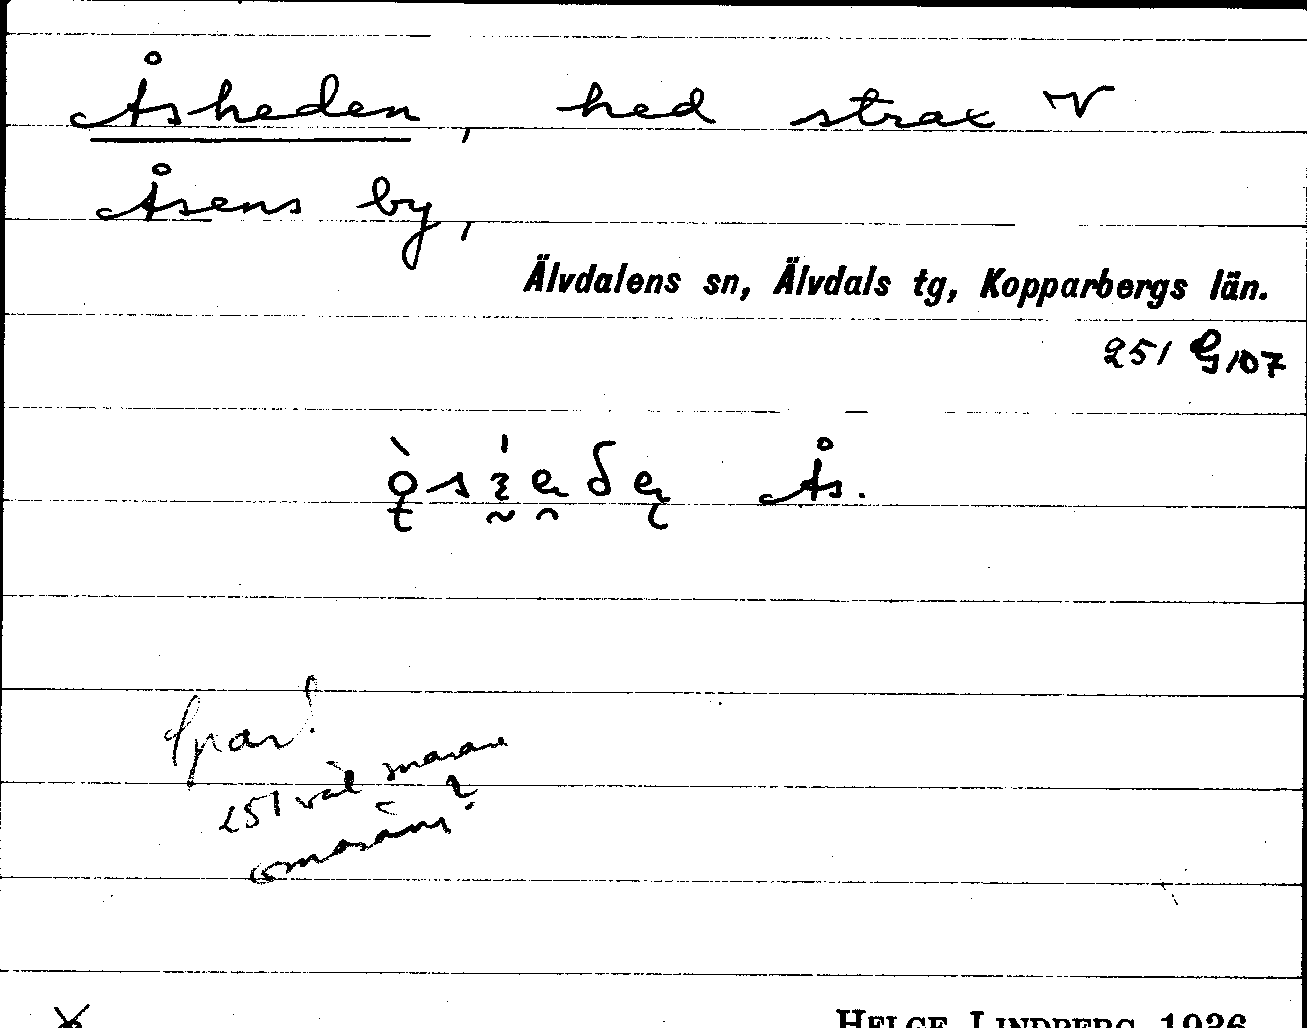 Åsheden, hed strax V
Åsens by,
Älvdalens sn, Älvdals tg, Kopparbergs län.
251 G 107
Ås.
Spar!
251 väl snarare
HELGE LINDBERG 1926